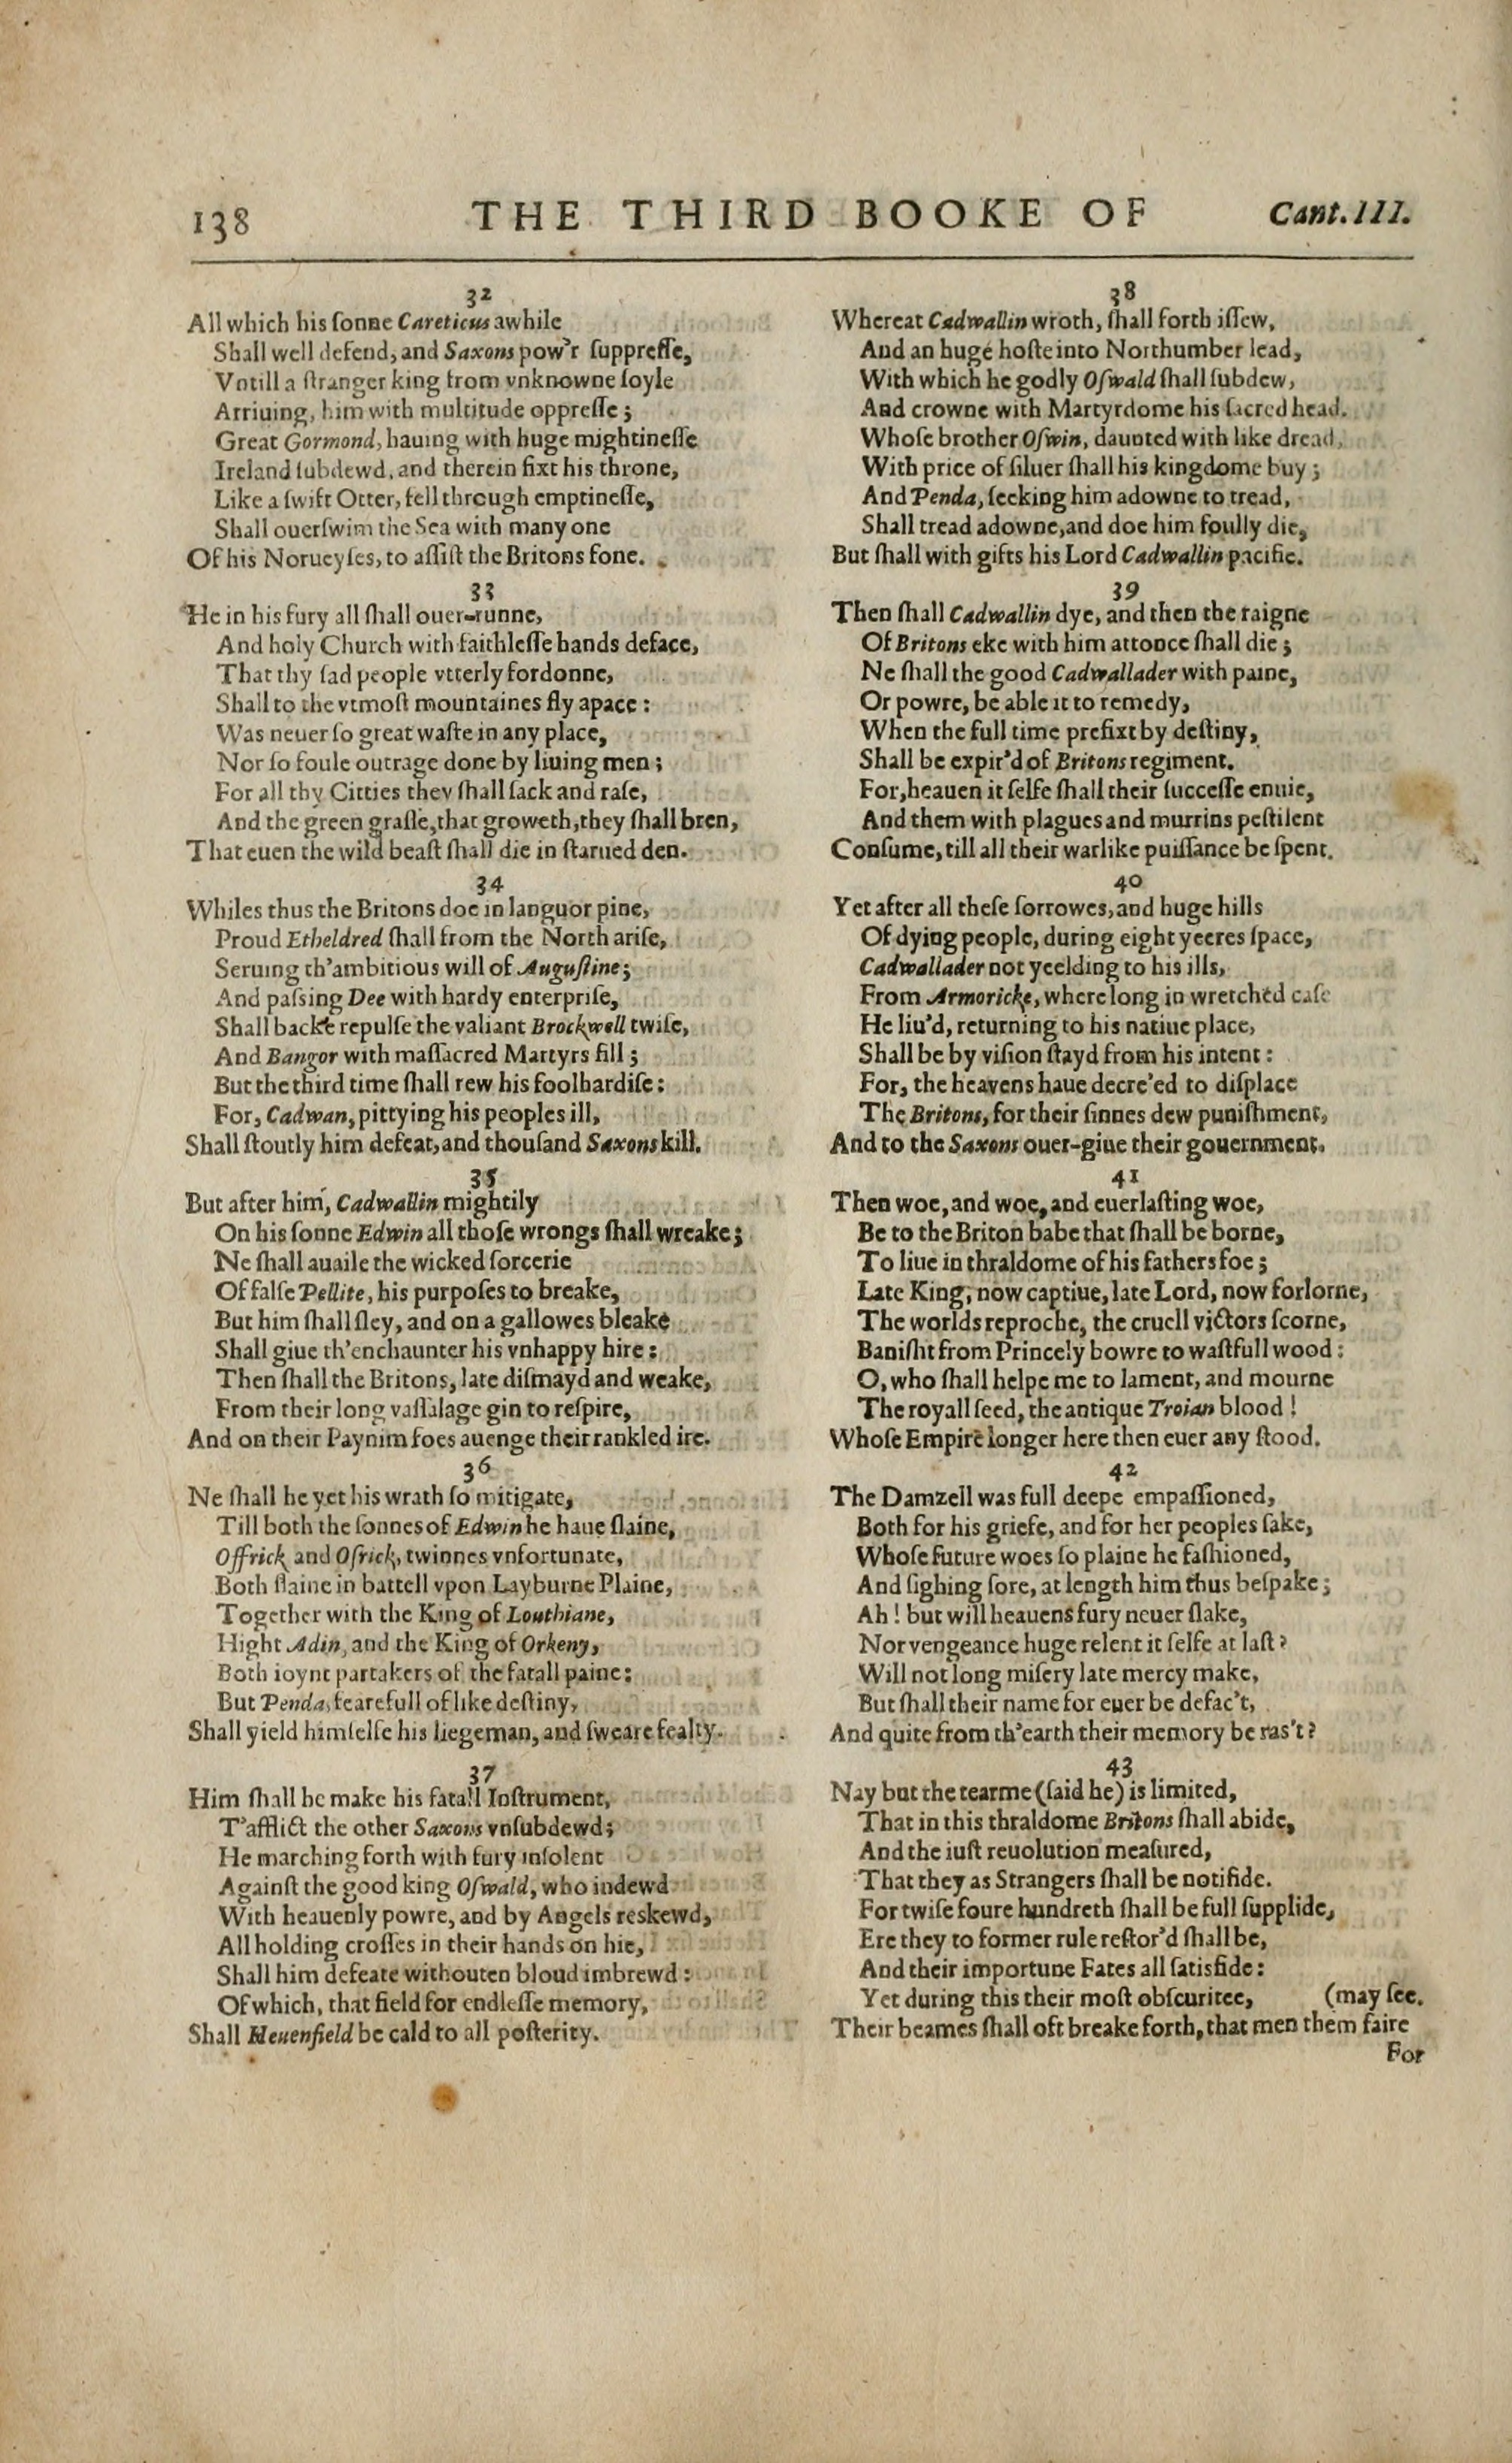 138 THE THIRD BOOKE OF Cant. III.
32
All which his ſonne Careticus awhile
Shall well defend, and Saxons pow'r ſuppreſſe,
Vntill a ſtranger king from vnknowne ſoyle
Arriuing, him with multitude oppreſſe;
Great Gormond, hauing with huge mightineſſe
Ireland ſubdewd, and therein fixt his throne,
Like a ſwift Otter, fell through emptineſſe,
Shall ouerſwim the Sea with many one
Of his Norueyſes, to aſſiſt the Britons fone.
33
He in his fury all ſhall ouer-runne,
And holy Church with faithleſſe hands deface,
That thy ſad people vtterly fordonne,
Shall to the vtmoſt mountaines fly apace:
Was neuer ſo great waſte in any place,
Nor ſo foule outrage done by liuing men;
For all thy Citties they ſhall ſack and raſe,
And the green graſſe, that groweth, they ſhall bren,
That euen the wild beaſt ſhall die in ſtarued den.
34
Whiles thus the Britons doe in languor pine,
Proud Etheldred ſhall from the North ariſe,
Seruing th'ambitious will of Auguſtine;
And paſsing Dee with hardy enterpriſe,
Shall backe repulſe the valiant Brockwell twiſe,
And Bangor with maſſacred Martyrs fill;
But the third time ſhall rew his foolhardiſe:
For, Cadwan, pittying his peoples ill,
Shall ſtoutly him defeat, and thouſand Saxons kill.
35
But after him, Cadwallin mightily
On his ſonne Edwin all thoſe wrongs ſhall wreake;
Ne ſhall auaile the wicked ſorcerie
Of falſe Pellite, his purpoſes to breake,
But him ſhall ſley, and on a gallowes bleake
Shall giue th'enchaunter his vnhappy hire:
Then ſhall the Britons, late diſmayd and weake,
From their long vaſſalage gin to reſpire,
And on their Paynim foes auenge their rankled ire.
36
Ne ſhall he yet his wrath ſo mitigate,
Till both the ſonnes of Edwin he haue ſlaine,
Offrick and Oſrick, twinnes vnfortunate,
Both ſlaine in battell vpon Layburne Plaine,
Together with the King of Louthiane,
Hight Adin, and the King of Orkeny,
Both ioynt partakers of the fatall paine:
But Penda, fearefull of like deſtiny,
Shall yield himſelfe his liegeman, and ſweare fealty.
37
Him ſhall he make his fatall Inſtrument,
T'afflict the other Saxons vnſubdewd;
He marching forth with fury inſolent
Againſt the good king Oſwald, who indewd
With heauenly powre, and by Angels reskewd,
All holding croſſes in their hands on hie,
Shall him defeate withouten bloud imbrewd:
Of which, that field for endleſſe memory,
Shall Heuenfield be cald to all poſterity.
38
Whereat Cadwallin wroth, ſhall forth iſſew,
And an huge hoſte into Northumber lead,
With which he godly Oſwald ſhall ſubdew,
And crowne with Martyrdome his ſacred head.
Whoſe brother Oſwin, daunted with like dread,
With price of ſiluer ſhall his kingdome buy;
And Penda, ſeeking him adowne to tread,
Shall tread adowne, and doe him foully die,
But ſhall with gifts his Lord Cadwallin pacifie.
39
Then ſhall Cadwallin dye, and then the raigne
Of Britons eke with him attonce ſhall die;
Ne ſhall the good Cadwallader with paine,
Or powre, be able it to remedy,
When the full time prefixt by deſtiny,
Shall be expir'd of Britons regiment.
For, heauen it ſelfe ſhall their ſucceſſe enuie,
And them with plagues and murrins peſtilent
Conſume, till all their warlike puiſſance be ſpent.
40
Yet after all theſe ſorrowes, and huge hills
Of dying people, during eight yeeres ſpace,
Cadwallader not yeelding to his ills,
From Armoricke, where long in wretched caſe
He liu'd, returning to his natiue place,
Shall be by viſion ſtayd from his intent:
For, the heavens haue decre'ed to diſplace
The Britons, for their ſinnes dew puniſhment,
And to the Saxons ouer-giue their gouernment.
41
Then woe, and woe, and euerlaſting woe,
Be to the Briton babe that ſhall be borne,
To liue in thraldome of his fathers foe;
Late King, now captiue, late Lord, now forlorne,
The worlds reproche, the cruell victors ſcorne,
Baniſht from Princely bowre to waſtfull wood:
O, who ſhall helpe me to lament, and mourne
The royall ſeed, the antique Troian blood!
Whoſe Empire longer here then euer any ſtood.
42
The Damzell was full deepe empaſſioned,
Both for his griefe, and for her peoples ſake,
Whoſe future woes ſo plaine he faſhioned,
And ſighing ſore, at length him thus beſpake;
Ah! but will heauens fury neuer ſlake,
Nor vengeance huge relent it ſelfe at laſt?
Will not long miſery late mercy make,
But ſhall their name for euer be defac't,
And quite from th'earth their memory be ras't?
43
Nay but the tearme (ſaid he) is limited,
That in this thraldome Britons ſhall abide,
And the iuſt reuolution meaſured,
That they as Strangers ſhall be notifide.
For twiſe foure hundreth ſhall be full ſupplide,
Ere they to former rule reſtor'd ſhall be,
And their importune Fates all ſatisfide:
Yet during this their moſt obſcuritee, (may ſee.
Their beames ſhall oft breake forth, that men them faire
For